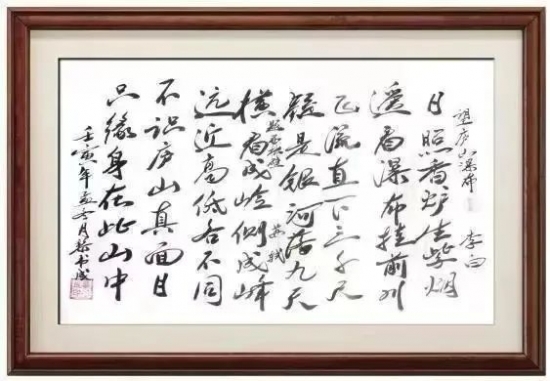 望庐山瀑布 李白
日照香炉生紫烟
遥看瀑布挂前川
飞流直下三千尺
疑是银河落九天
题西林壁 苏轼
横看成岭侧成峰
远近高低各不同
不识庐山真面目
只缘身在此山中
壬寅年 月 书